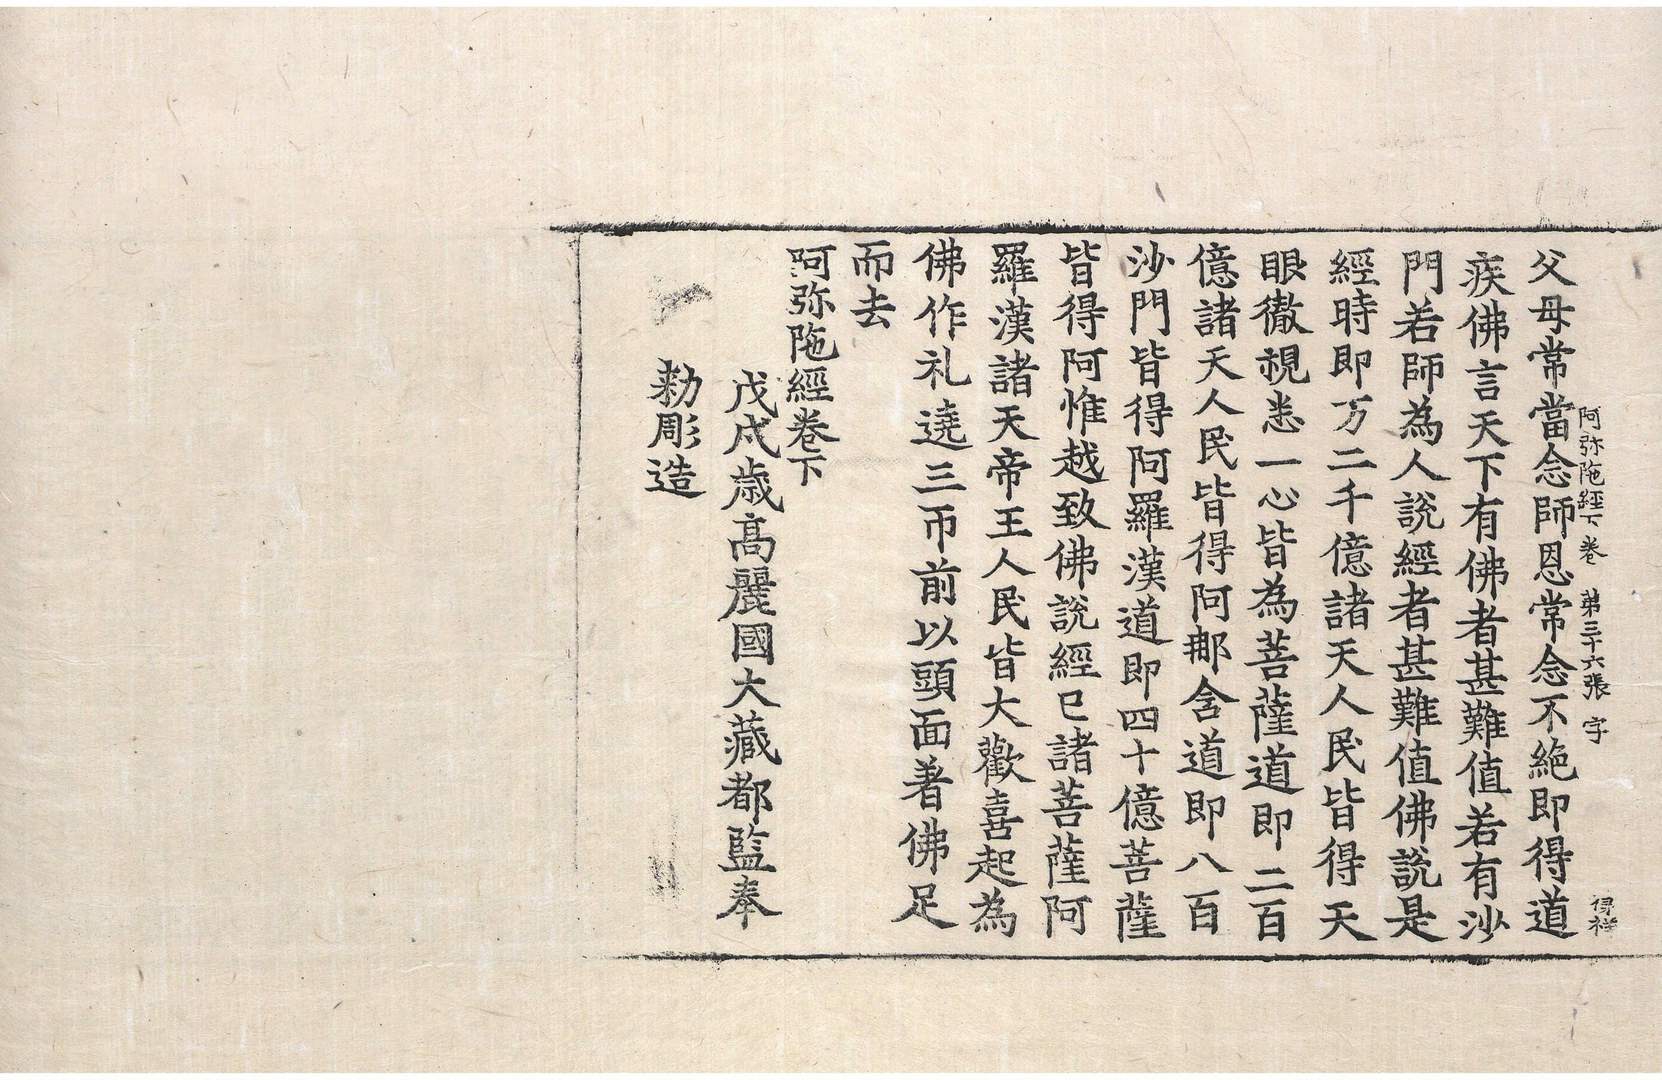 阿弥陁經下卷 第三十六張 字 得祥
父母常當念師恩常念不絶即得道
疾佛言天下有佛者甚難值若有沙
門若師為人說經者甚難值佛說是
經時即万二千億諸天人民皆得天
眼徹視悉一心皆為菩薩道即二百
億諸天人民皆得阿那含道即八百
沙門皆得阿羅漢道即四十億菩薩
皆得阿惟越致佛說經已諸菩薩阿
羅漢諸天帝王人民皆大歡喜起為
佛作礼遶三帀前以頭面著佛足
而去
阿弥陁經卷下
戊戌歳高麗國大藏都監奉
勑彫造